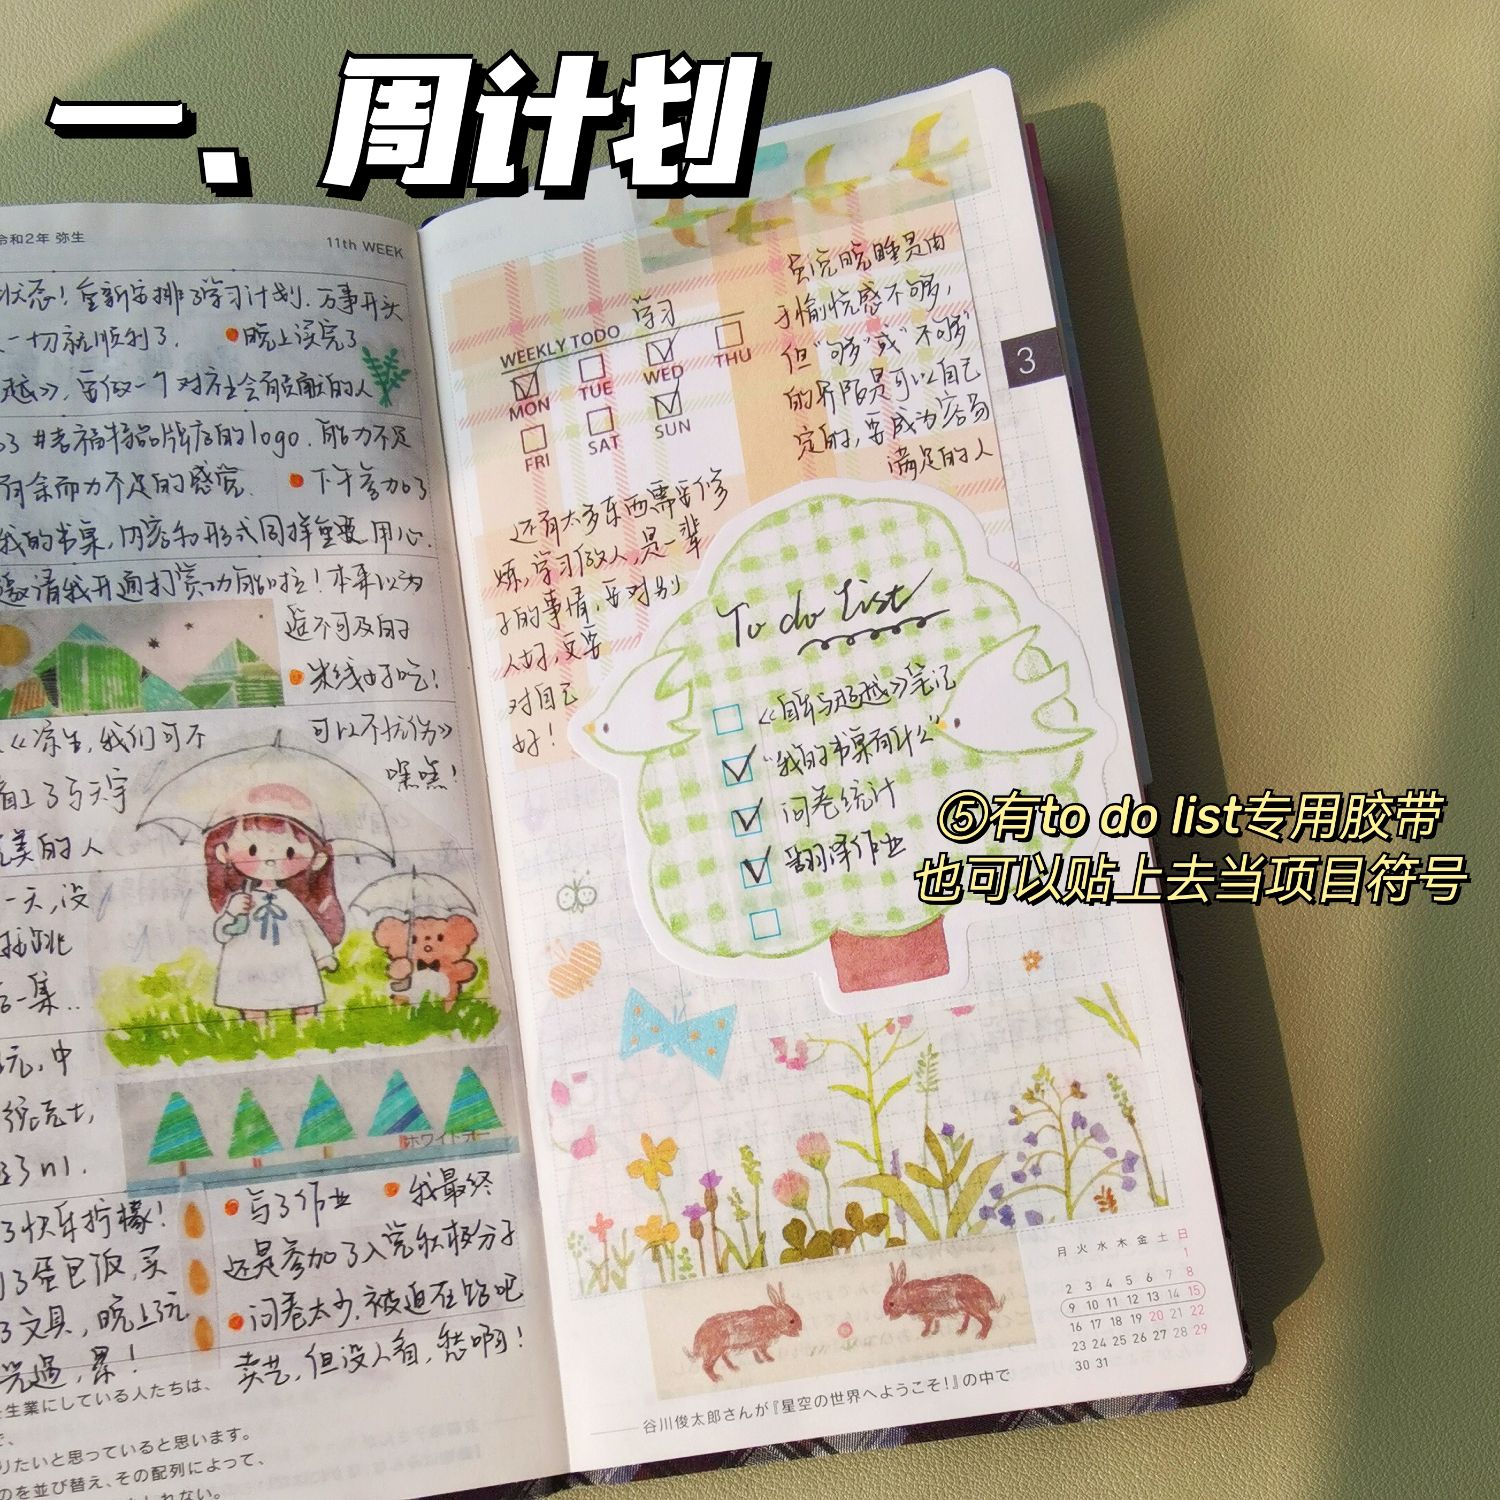 一、周计划
令和2年 弥生
11th WEEK
状态！重新安排了学习计划.万事开头
一切就顺利了. 晚上读完了
越》,要做一个对社会有贡献的人
老福特品牌店的logo.能力不足
有余而力不足的感觉. 下午参加了
我的书桌,内容和形式同样重要.用心.
邀请我开通打赏功能啦！本来以为
遥不可及的
米线好吃！
《凉生,我们可不
可以不忧伤》
嘿嘿！
完美的人
一天,没
一集..
元,中
了快乐柠檬！
了蛋包饭,买
了文具,晚上玩
累！
写了作业 我最终
还是参加了入党积极分子
问卷太少,被迫在馆吧
卖艺,但没人看,愁啊！
ホワイトティー
生業にしている人たちは、
で、
りたいと思っていると思います。
のを並び替え、その配列によって、
しれない。
虽说晚睡是由
于愉悦感不够,
但“够”或“不够”
的界限是可以自己
定的,要成为容易
满足的人
WEEKLY TODO 学习
MON TUE WED THU
FRI SAT SUN
3
还有太多东西需要修
炼,学习做人,是一辈
子的事情,要对别
人好,更要
对自己
好！
To do list
《自卑与超越》笔记
“我的书桌有什么”
问卷统计
翻译作业
⑤有to do list专用胶带
也可以贴上去当项目符号
月 火 水 木 金 土 日
1
2 3 4 5 6 7 8
9 10 11 12 13 14 15
16 17 18 19 20 21 22
23 24 25 26 27 28 29
30 31
谷川俊太郎さんが『星空の世界へようこそ！』の中で